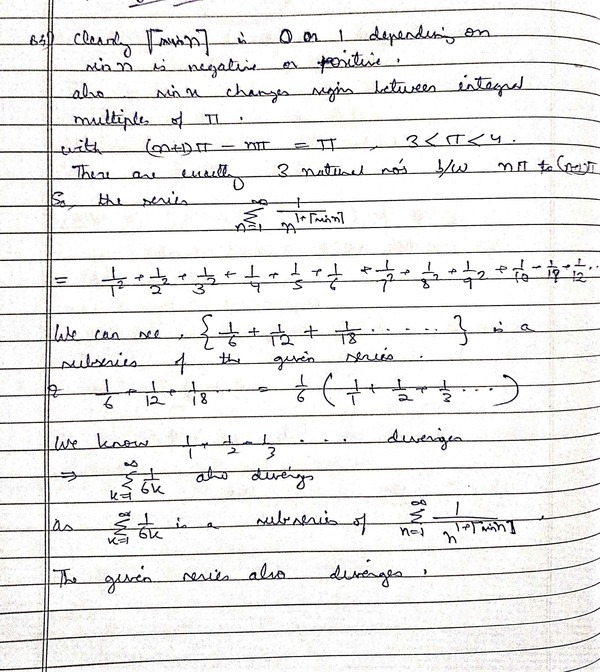 Clearly ⌈sin n⌉ is 0 or 1 depending on
sin n is negative or positive.
also sin x changes sign between integral
multiples of π.
with (n+1)π - nπ = π , 3 < π < 4.
There are exactly 3 natural no's b/w nπ to (n+1)π
So, the series ∑_{n=1}^{∞} 1/n^{1+⌈sin n⌉}
= 1/1² + 1/2² + 1/3² + 1/4 + 1/5 + 1/6 + 1/7² + 1/8² + 1/9² + 1/10 + 1/19 + 1/12 ..
We can see, { 1/6 + 1/12 + 1/18 ..... } is a
subseries of the given series.
& 1/6 + 1/12 + 1/18 ... = 1/6 ( 1/1 + 1/2 + 1/3 ... )
We know 1/1 + 1/2 + 1/3 .... diverges
⇒ ∑_{k=1}^{∞} 1/6k also divergs
as ∑_{k=1}^{∞} 1/6k is a subseries of ∑_{n=1}^{∞} 1/n^{1+⌈sin n⌉} .
The given series also diverges.